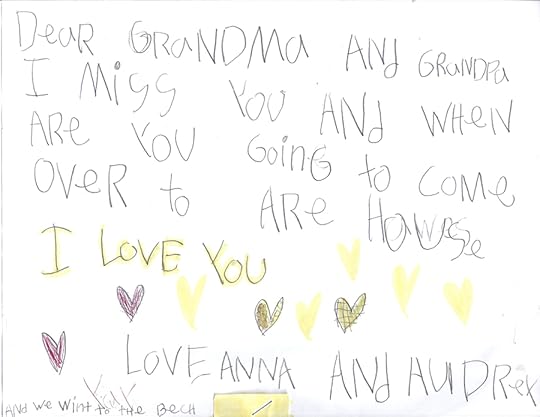 DEAR GRANDMA AND GRANDPA
I MISS YOU AND WHEN
ARE YOU GOING to COME
OVER to ARE HOUWSE
I LOVE YOU
LOVE ANNA AND AUDREY
AND WE WINT to THE BECH